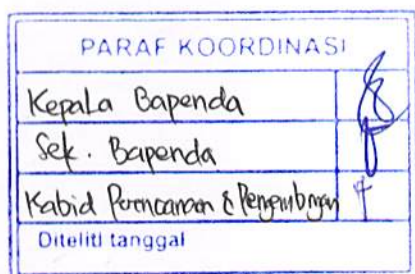 PARAF KOORDINASI
Kepala Bapenda
Sek. Bapenda
Kabid Perencanaan & Pengembngn
Diteliti tanggal